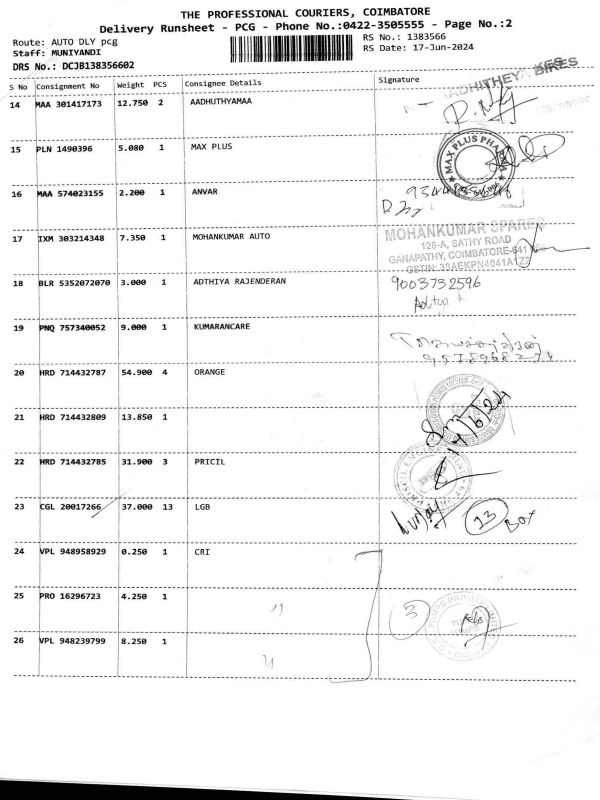 THE PROFESSIONAL COURIERS, COIMBATORE
Delivery Runsheet - PCG - Phone No.:0422-3505555 - Page No.:2
Route: AUTO DLY pcg RS No.: 1383566
Staff: MUNIYANDI RS Date: 17-Jun-2024
DRS No.: DCJB138356602
S No Consignment No Weight PCS Consignee Details Signature
14 MAA 301417173 12.750 2 AADHUTHYAMAA
15 PLN 1490396 5.080 1 MAX PLUS
MAX PLUS PHARMA
16 MAA 574023155 2.200 1 ANVAR
17 IXM 303214348 7.350 1 MOHANKUMAR AUTO
MOHANKUMAR SPARES
128-A, SATHY ROAD
GANAPATHY, COIMBATORE-641
GSTIN: 33AEKPN4041A1Z2
18 BLR 5352072070 3.000 1 ADTHIYA RAJENDERAN
9003732596
19 PNQ 757340052 9.000 1 KUMARANCARE
20 HRD 714432787 54.900 4 ORANGE
21 HRD 714432809 13.850 1
22 HRD 714432785 31.900 3 PRICIL
23 CGL 20017266 37.000 13 LGB
13 Box
24 VPL 948958929 0.250 1 CRI
25 PRO 16296723 4.250 1 "
3
26 VPL 948239799 8.250 1 "